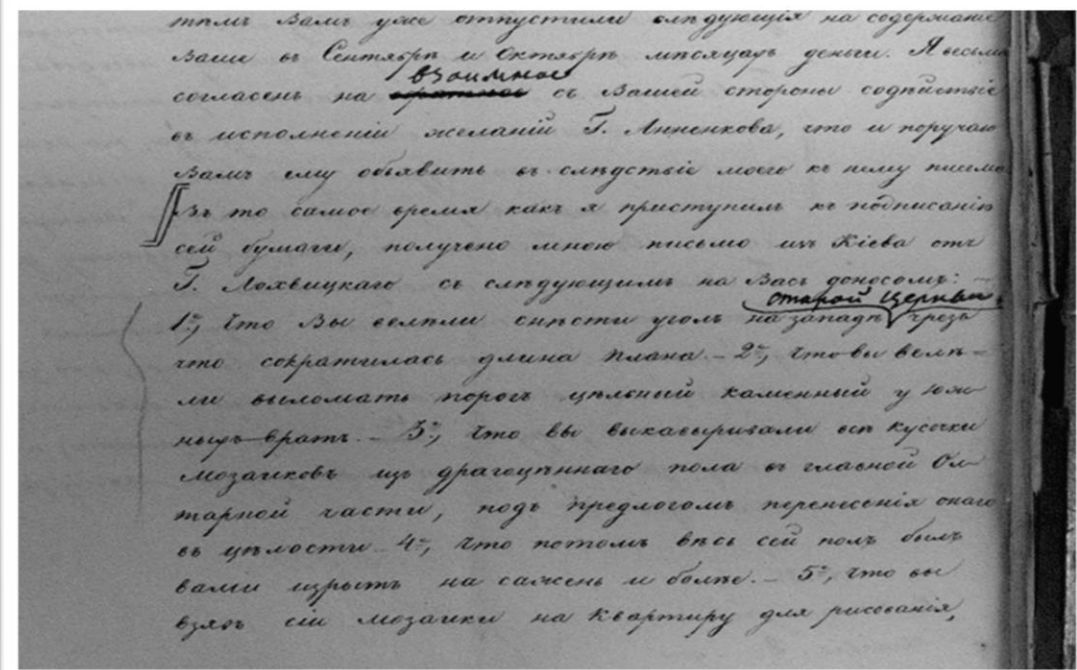 тѣмъ Вамъ уже отпустили слѣдующія на содержаніе
Ваши въ Сентябрѣ и Октябрѣ мѣсяцахъ деньги. Я весьма
взаимное
согласенъ на обратное съ Вашей стороны содѣйствіе
въ исполненіи желаній Г. Анненкова, что и поручаю
Вамъ ему объявить въ слѣдствіе моего къ нему письма
Въ то самое время какъ я приступилъ къ подписанію
сей бумаги, получено мною письмо изъ Кіева отъ
Г. Лохвицкаго съ слѣдующимъ на Васъ доносомъ: –
старой Церкви
1е, Что Вы велѣли снѣсти уголъ на западъ чрезъ
что сократилась длина плана. – 2е, Что вы велѣ=
ли выломать порогъ цѣльный каменный у юж-
ныхъ вратъ. – 3е, Что вы выкавыривали всѣ кусочки
мозаиковъ изъ драгоцѣннаго пола въ главной Ол-
тарной части, подъ предлогомъ перенесенія онаго
въ цѣлости – 4е, Что потомъ вѣсь сей полъ былъ
вами изрытъ на сажень и болѣе. – 5е, Что вы
взявъ сіи мозаики на квартиру для рисованія,